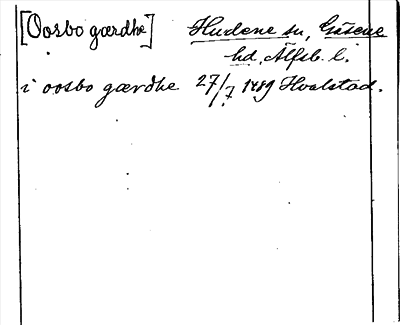 [Oosbo gærdhe] Hudene sn, Gäsene
hd, Älfsb. l.
i oosbo gærdhe 27/7 1489 Hvalstad.